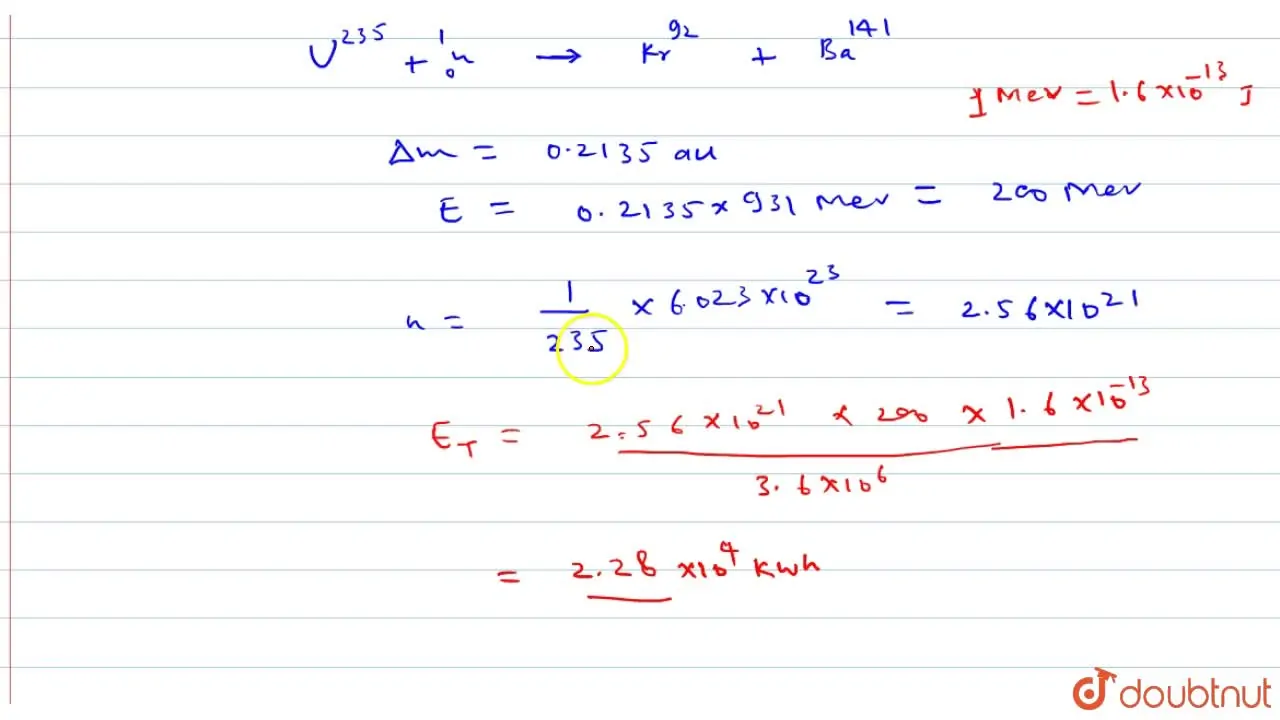 U²³⁵ + ¹₀n → Kr⁹² + Ba¹⁴¹
1 Mev = 1.6×10⁻¹³ J
Δm = 0.2135 au
E = 0.2135 × 931 Mev = 200 Mev
n = 1/235 × 6.023×10²³ = 2.56×10²¹
E_T = 2.56×10²¹ × 200 × 1.6×10⁻¹³ / 3.6×10⁶
= 2.28 ×10⁴ Kwh
doubtnut